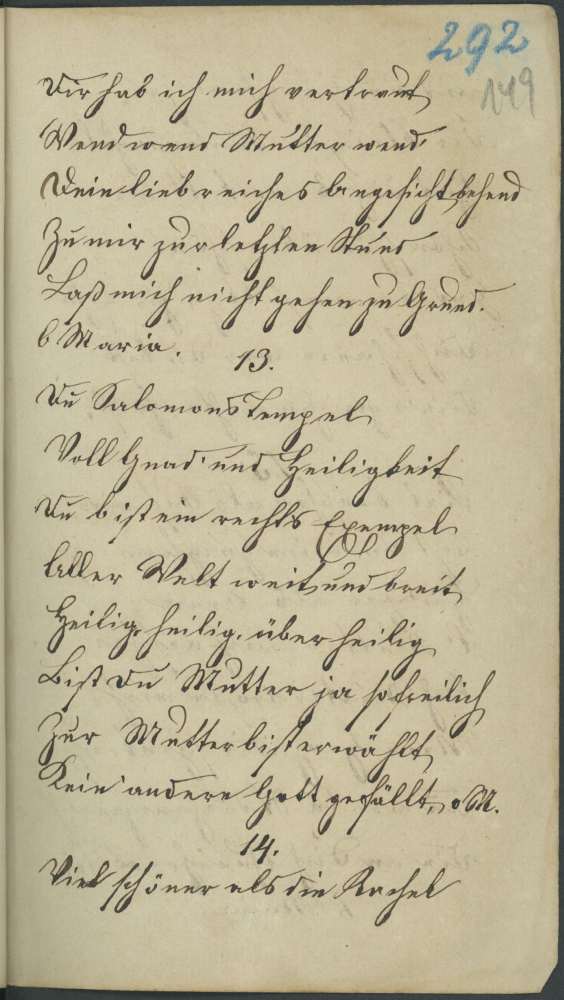 292
149
Dir hab ich mich vertraut
Wend wend Mutter wend
Dein liebreiches Angesicht behend
Zu mir zur letzten Stund
Laß mich nicht gehen zu Grund.
O Maria.
13.
Du Salomons Tempel
Voll Gnad' und Heiligkeit
Du bist ein rechts Exempel
Aller Welt weit und breit
Heilig, heilig, über heilig
Bist Du Mutter ja so freilich
Zur Mutter bist erwählt
Kein andere Gott gefällt, o M.
14.
Viel schöner als die Rachel